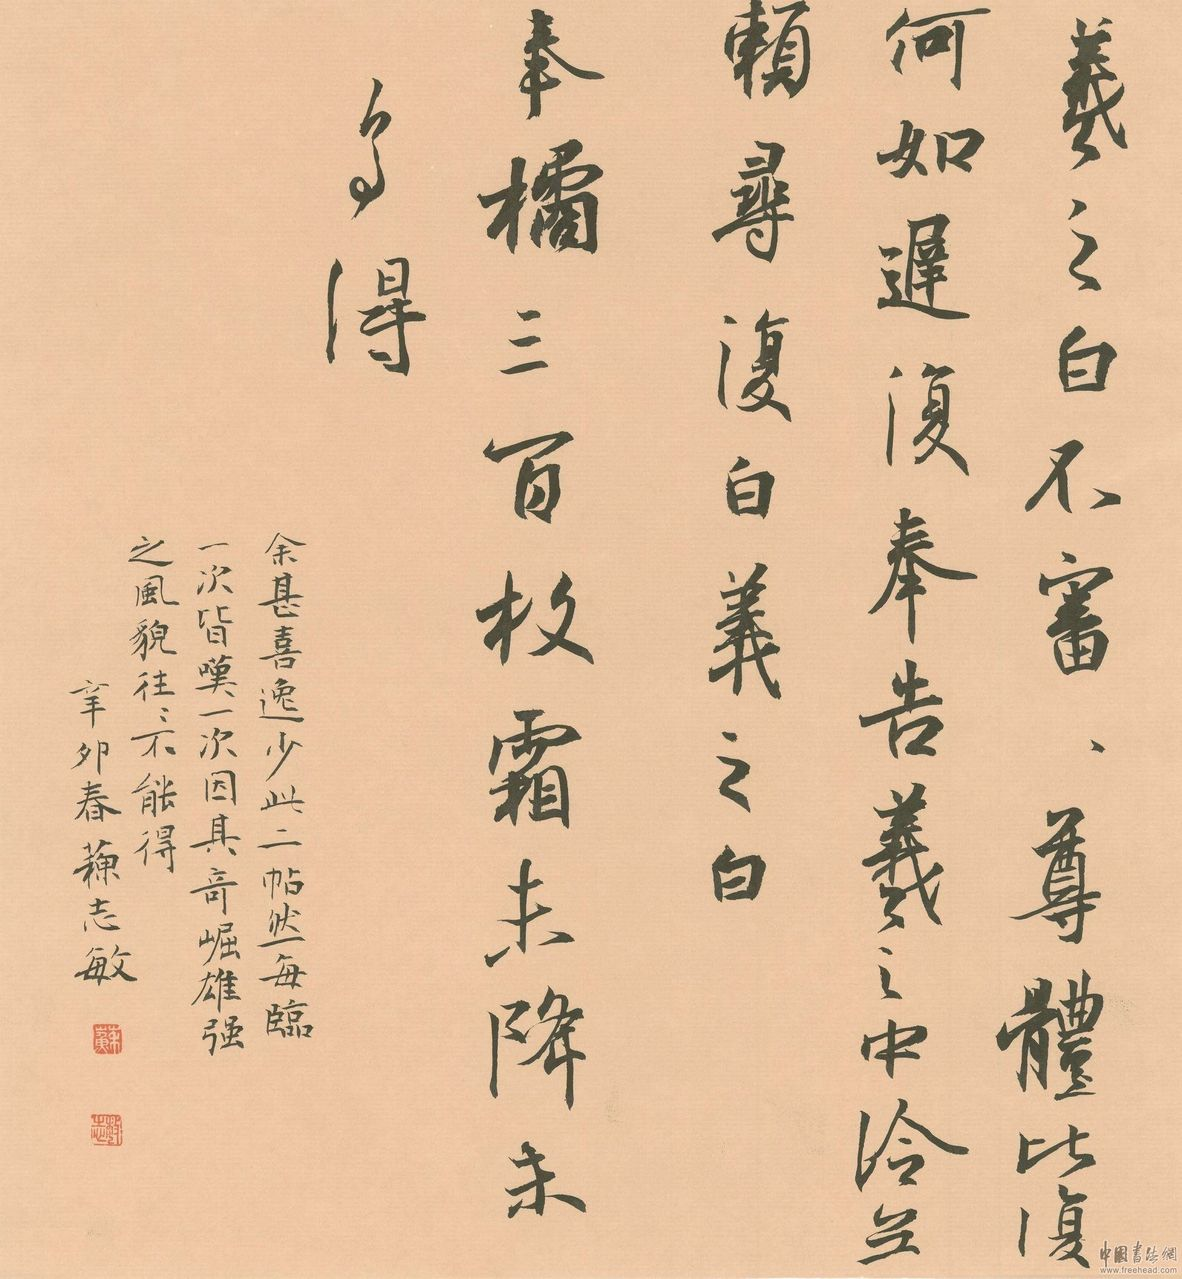 羲之白不審、尊體比復
何如遲復奉告羲之中冷無
賴尋復白羲之白
奉橘三百枚霜未降未
可多得
余甚喜逸少此二帖然每臨
一次皆嘆一次因其奇崛雄强
之風貌往〻不能得
辛卯春蘇志敏
中国书法網
www.freehead.com